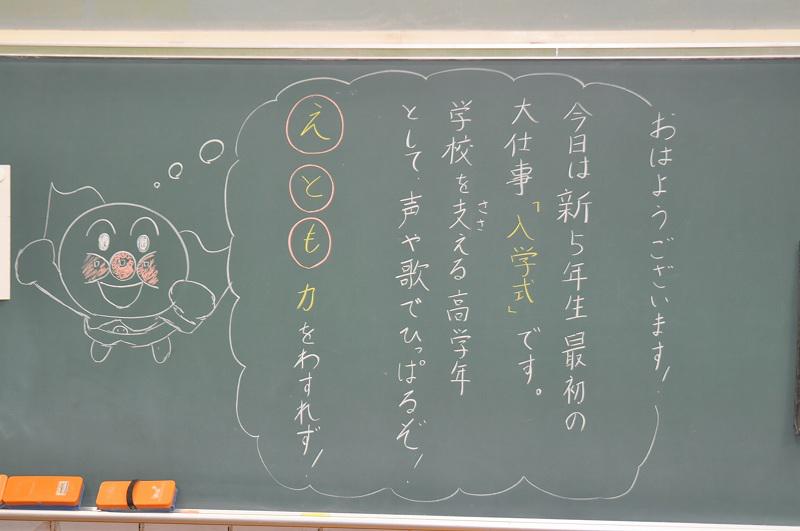 おはようございます！
今日は新5年生最初の
大仕事「入学式」です。
学校を支える高学年
ささ
として、声や歌でひっぱるぞ！
えとも力をわすれず！